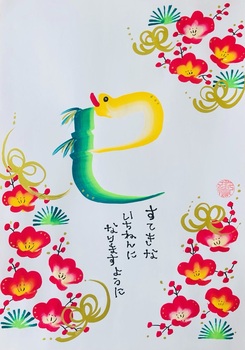 巳
すてきな
いちねんに
なりますように